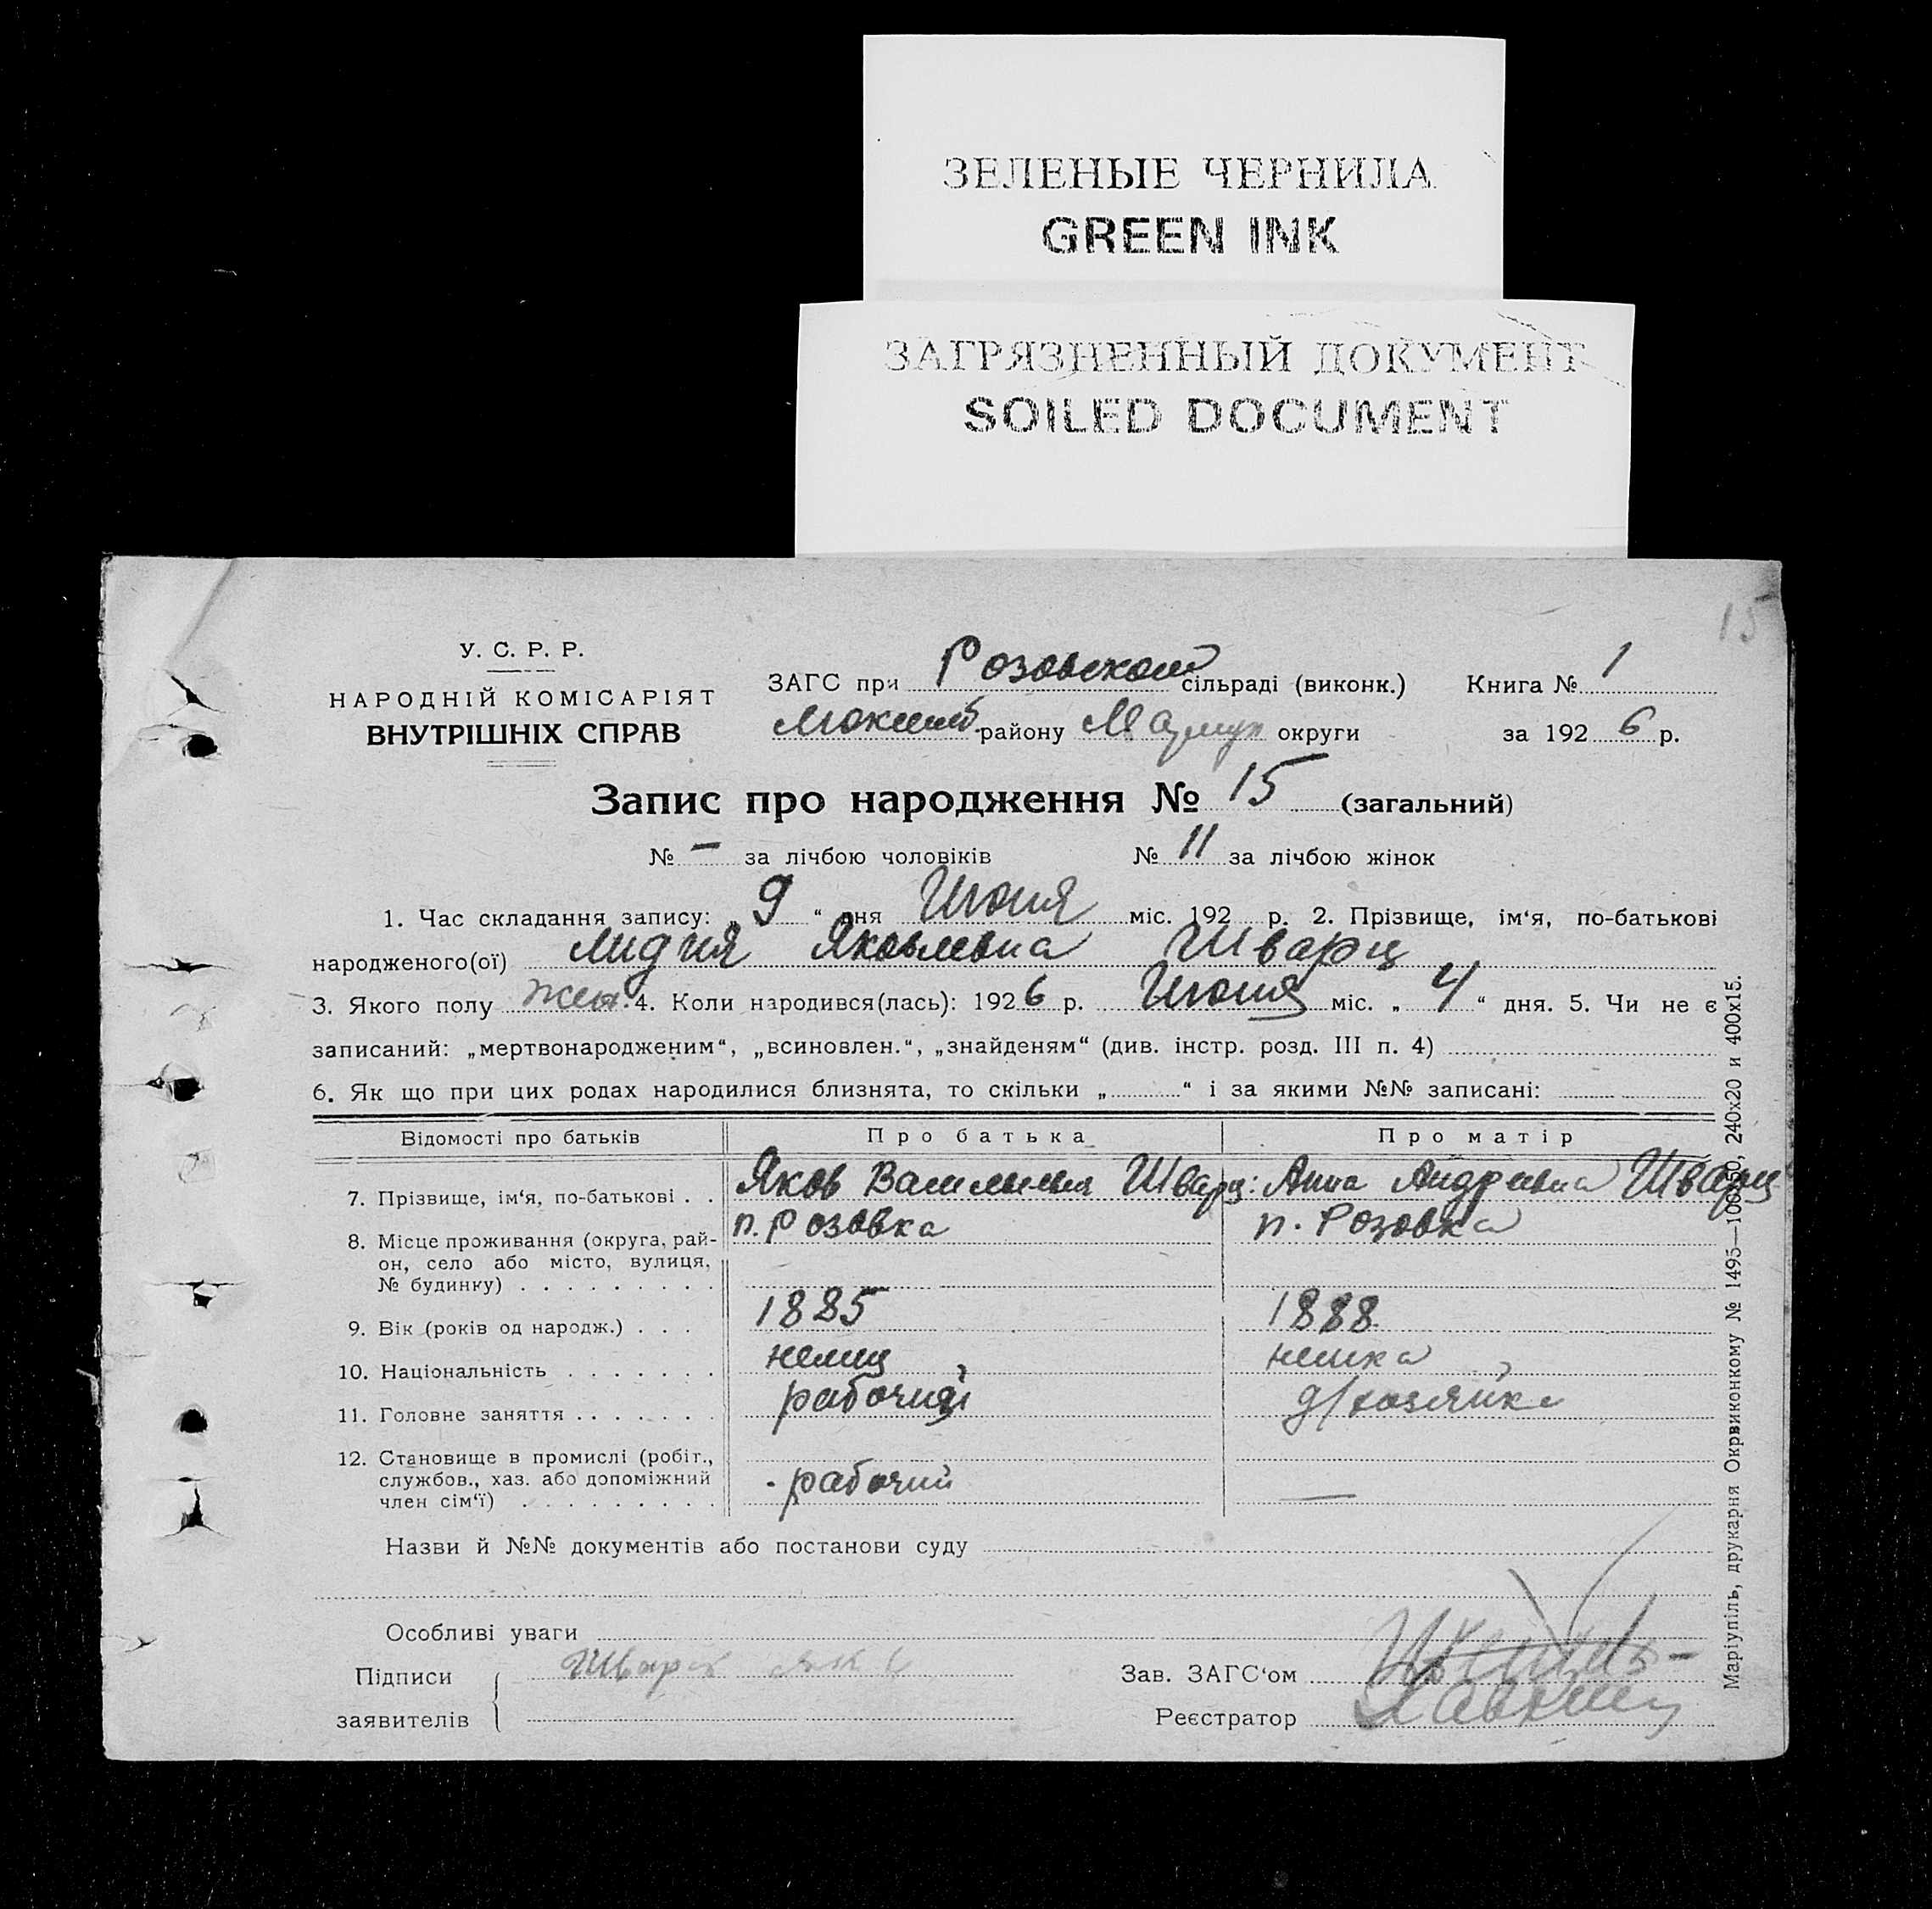 ЗЕЛЕНЫЕ ЧЕРНИЛА
GREEN INK
ЗАГРЯЗНЕННЫЙ ДОКУМЕНТ
SOILED DOCUMENT
15
У. С. Р. Р.
НАРОДНІЙ КОМІСАРІЯТ
ВНУТРІШНІХ СПРАВ
ЗАГС при Розовской сільраді (виконк.) Книга № 1
району округи за 1926 р.
Запис про народження № 15 (загальний)
№ — за лічбою чоловіків № 11 за лічбою жінок
1. Час складання запису: „9“ дня Июня міс. 192 р. 2. Прізвище, ім‘я, по-батькові
народженого(ої) Лидия Яковлевна Шварц
3. Якого полу жен. 4. Коли народився(лась): 1926 р. Июня міс. „4“ дня. 5. Чи не є
записаний: „мертвонародженим“, „всиновлен.“, „знайденям“ (див. інстр. розд. III п. 4)
6. Як що при цих родах народилися близнята, то скільки „ “ і за якими №№ записані:
Відомості про батьків Про батька Про матір
7. Прізвище, ім‘я, по-батькові . . Яков Шварц: Анна Андреевна Шварц
8. Місце проживання (округа, рай- п. Розовка п. Розовка
он, село або місто, вулиця,
№ будинку) . . . . . . . . .
9. Вік (років од народж.) . . . 1885 1888
10. Національність . . . . . . . немец немка
11. Головне заняття . . . . . . рабочий д/хозяйка
12. Становище в промислі (робіт.,
службов., хаз. або допоміжний рабочий —
член сім‘ї) . . . . . . . . .
Назви й №№ документів або постанови суду
Особливі уваги
Підписи Зав. ЗАГС‘ом
заявителів Реєстратор
Маріупіль, друкарня Окрвиконкому № 1495—100х50, 240х20 и 400х15.